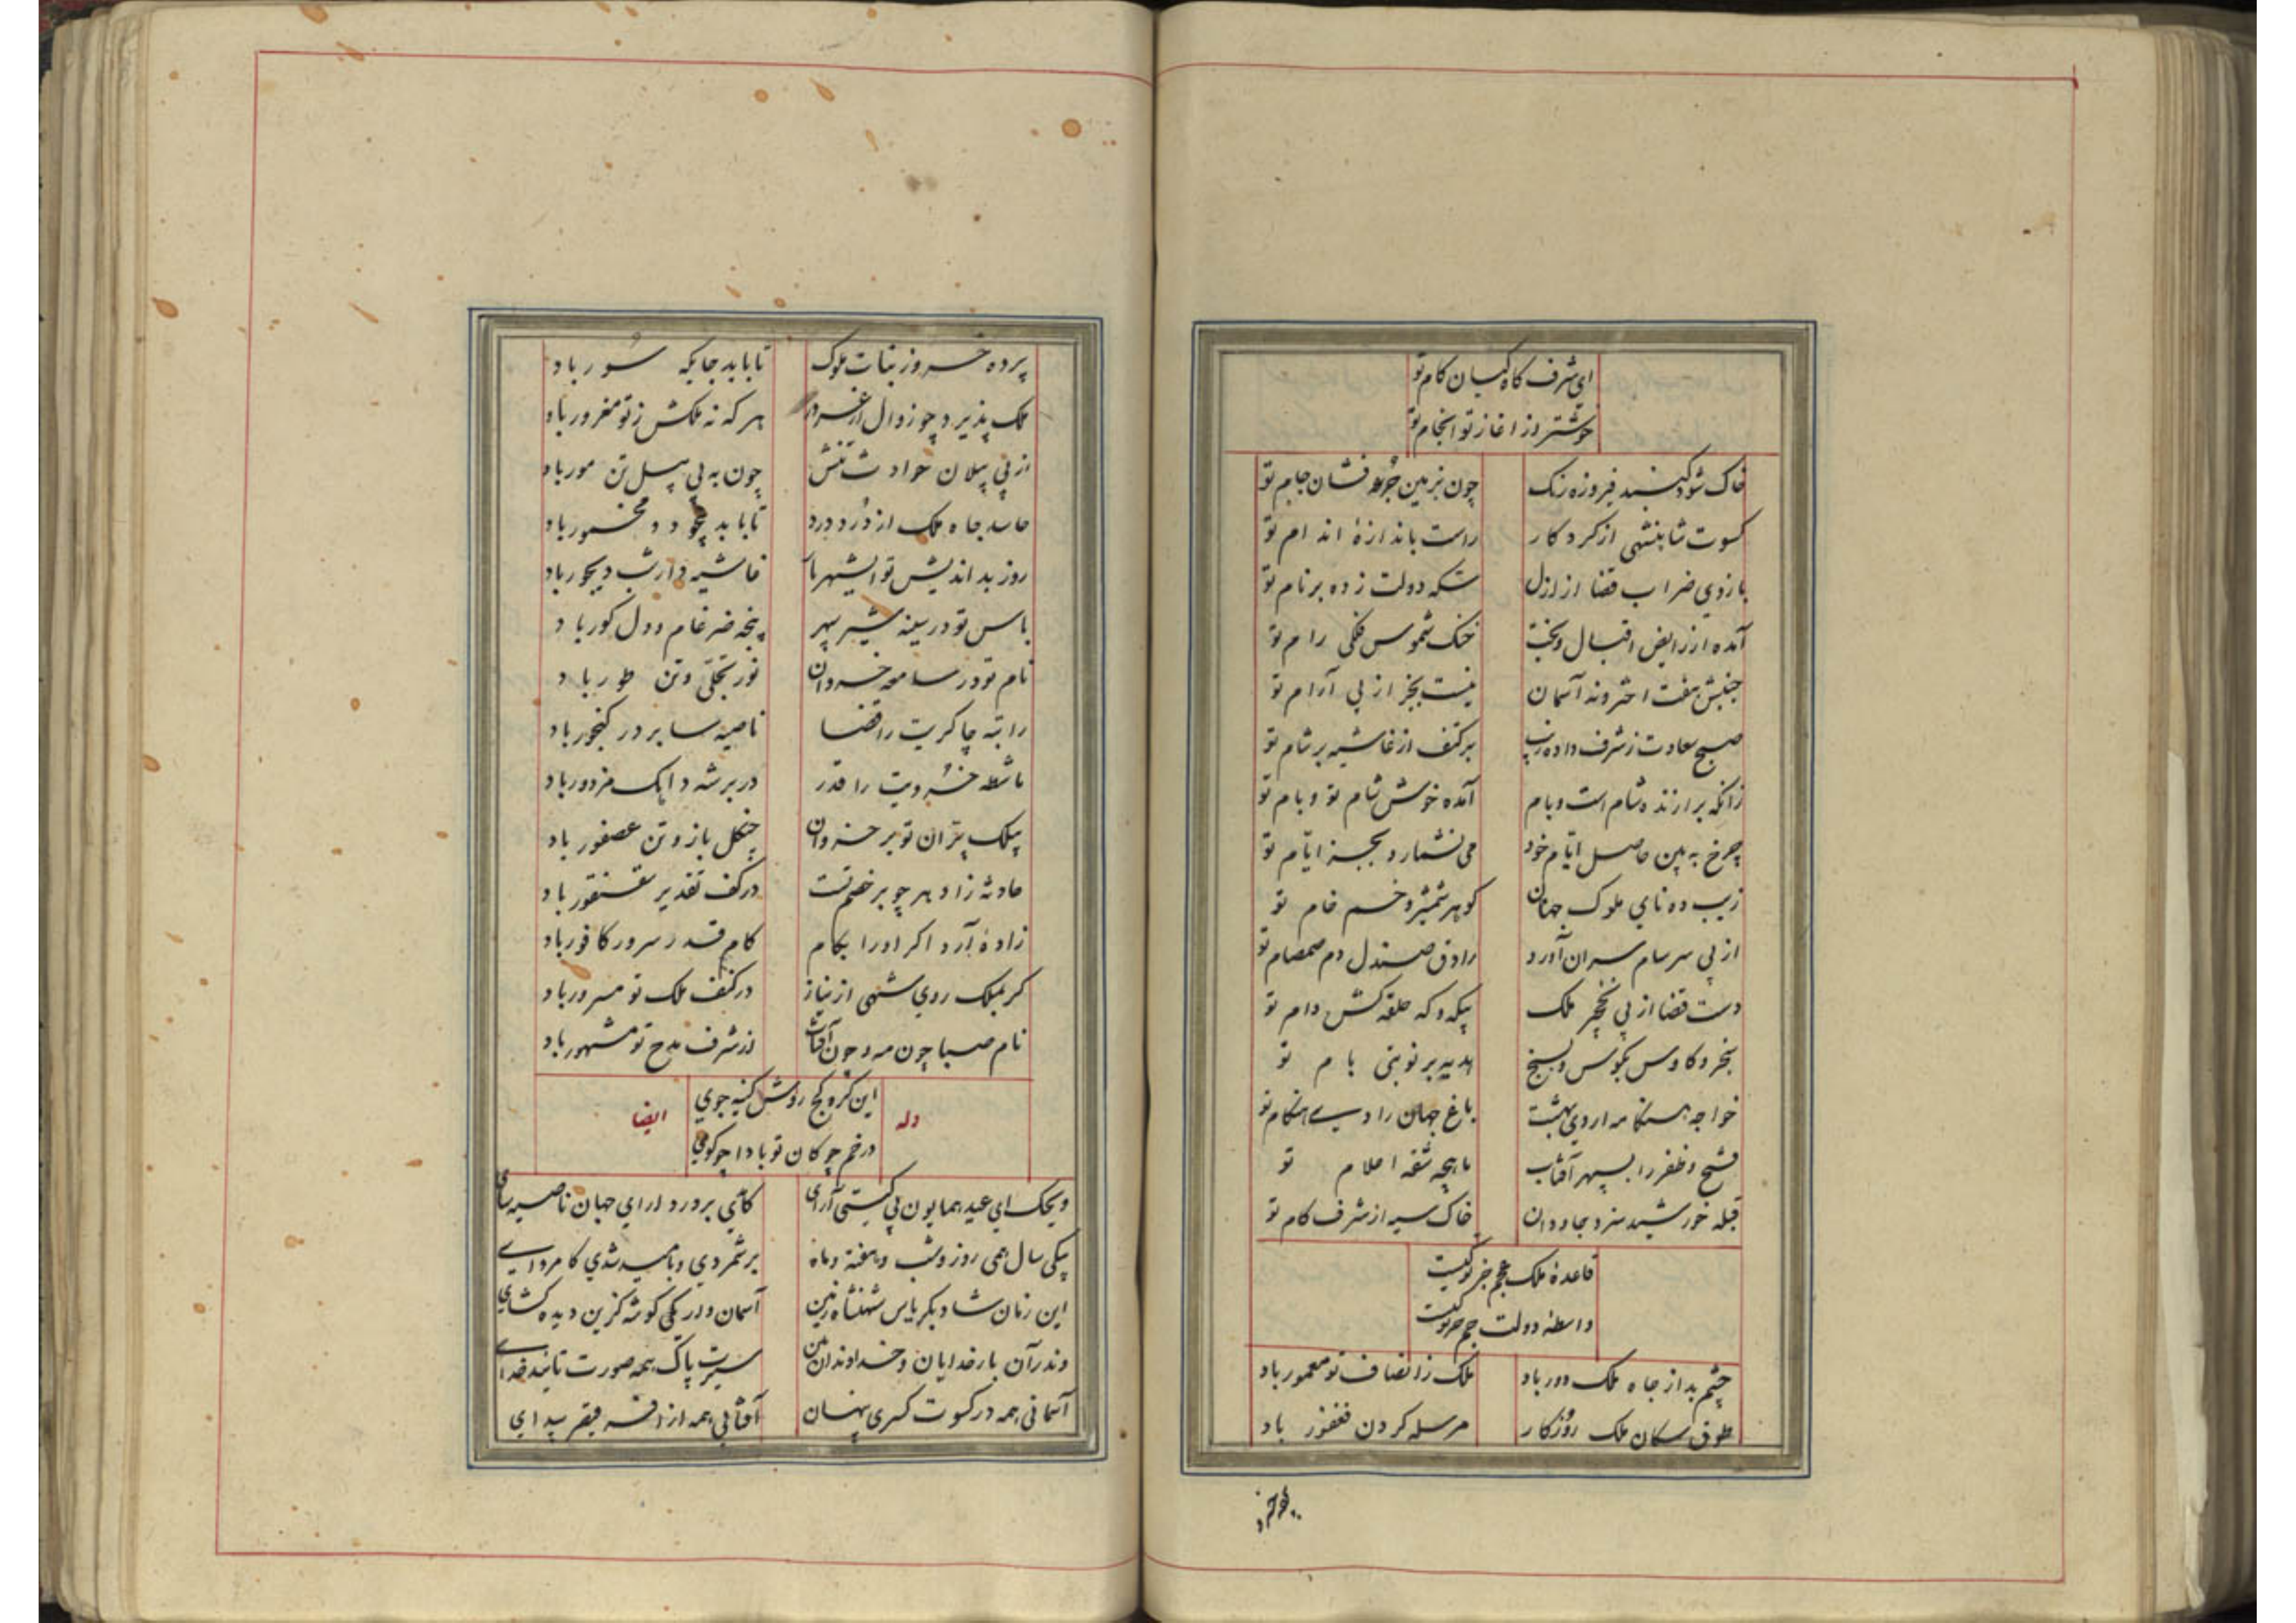 ای شرف کاه کیان کام تو
خوشتر از اغاز تو انجام تو
خاک شود کنبد فیروزه رنک چون بزمین جرعه فشان جام تو
کسوت شاهنشهی از کردکار راست باندازهٔ اندام تو
بازوی ضراب قضا از ازل سکه دولت زده بر نام تو
آمده از رایض اقبال و بخت خنک شموس فلکی رام تو
جنبش هفت اختر و نه آسمان نیست بجز از پی آرام تو
صبح سعادت ز شرف داده زیب بر کتف از غاشیه بر شام تو
زانکه برازنده شام است و بام آمده خوش شام تو و بام تو
چرخ بهین حاصل ایام خود می نشمارد بجز ایام تو
زیب ده نای ملوک جهان کوهر شمشیر و خم خام تو
از پی سرسام سران آورد رادق صندل دم صمصام تو
دست قضا از پی نخچیر ملک حلقه کش دام تو
سنجر و کاوس بکوس و بسنج هدیه بر نوبتی بام تو
خواجه هنکامه اردی بهشت باغ جهان را هنکام تو
فتح و ظفر را بسپهر آفتاب ماهچه شقه اعلام تو
قبله خورشید سزد جاودان خاک سیه از شرف کام تو
قاعدهٔ ملک عجم جز تو کیست
واسطه دولت جم جز تو کیست
چشم بد از جاه ملک دور باد ملک ز انصاف تو معمور باد
طوق سکان ملک روزکار مرسله کردن فغفور باد
پرده خسرو ز بنات ملوک تا بابد جایکه سور باد
ملک پذیرد چو زوال از غرور هر که نه ملکش ز تو مغرور باد
از پی پیلان حوادث تنش چون به پی پیل تن مور باد
حاسد جاه ملک از درد درد تا بابد مخمور باد
روز بد اندیش تو غاشیه دار شب دیجور باد
باس تو در سینه شیر سپهر پنجه ضرغام و دل کور باد
نام تو در سامعه خسروان نور تجلی و تن طور باد
راتبه چاکریت را قضا ناصیه سا بر در کنجور باد
ماشطه خسرویت را قدر در بر شه مزدور باد
پیلک پران تو بر خسروان چنکل باز و تن عصفور باد
حادثه زاد هر چو بر خصم تست در کف تقدیر سقنقور باد
زادهٔ آرد اکر او را بکام کام قدر سرور کافور باد
کر بملک روی شهی از نیاز در کنف ملک تو مسرور باد
نام صبا چون مه و چون آفتاب از شرف مدح تو مشهور باد
وله
این کره کج روش کینه جوی
در خم چوکان تو بادا چو کوی
ایضا
ویحک ای عید همایون پی کیتی آرای کآیی بر در دارای جهان ناصیه سای
یکی سال همی روز و شب و هفته و ماه بر شمردی و بامید شدی کامروای
این زمان شاد بکریاس شهنشاه زمین آسمان وار یکی کوشه کزین دیده کشای
وندر آن بار خدایان و خداوندان بین سیرت پاک همه صورت تائید خدای
آسمانی همه در کسوت کسری پنهان آفتابی همه از افسر قیصر پیدای